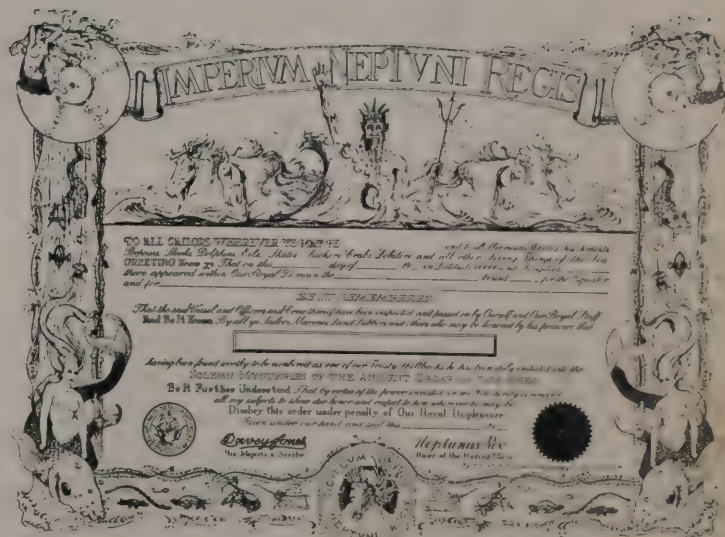 IMPERIVM NEPTVNI REGIS
TO ALL SAILORS WHEREVER YE MAY BE and to all Mermaids
Sharks Dolphins Eels Skates Crabs Lobsters and all other Living Things of the Sea
GREETING Know ye That on this day of 19 in Latitude Longitude
there appeared within Our Royal Domain the bound for the Equator
and for
BE IT REMEMBERED
That the said Vessel and Officers and Crew thereof have been inspected and passed on by Ourself and Our Royal Staff
And Be It Known By all ye Sailors Marines Land Lubbers and others who may be honored by his presence that
having been found worthy to be numbered as one of our Trusty Shellbacks he has been duly initiated into the
SOLEMN MYSTERIES OF THE ANCIENT ORDER OF
Be It Further Understood That by virtue of the power invested in me I do hereby command
all my subjects to show due honor and respect to him wherever he may be
Disobey this order under penalty of Our Royal Displeasure
Given under our hand and seal this
Davey Jones
His Majesty's Scribe
Neptunus Rex
Ruler of the Raging Main
SIGILLUM
NEPTUNI